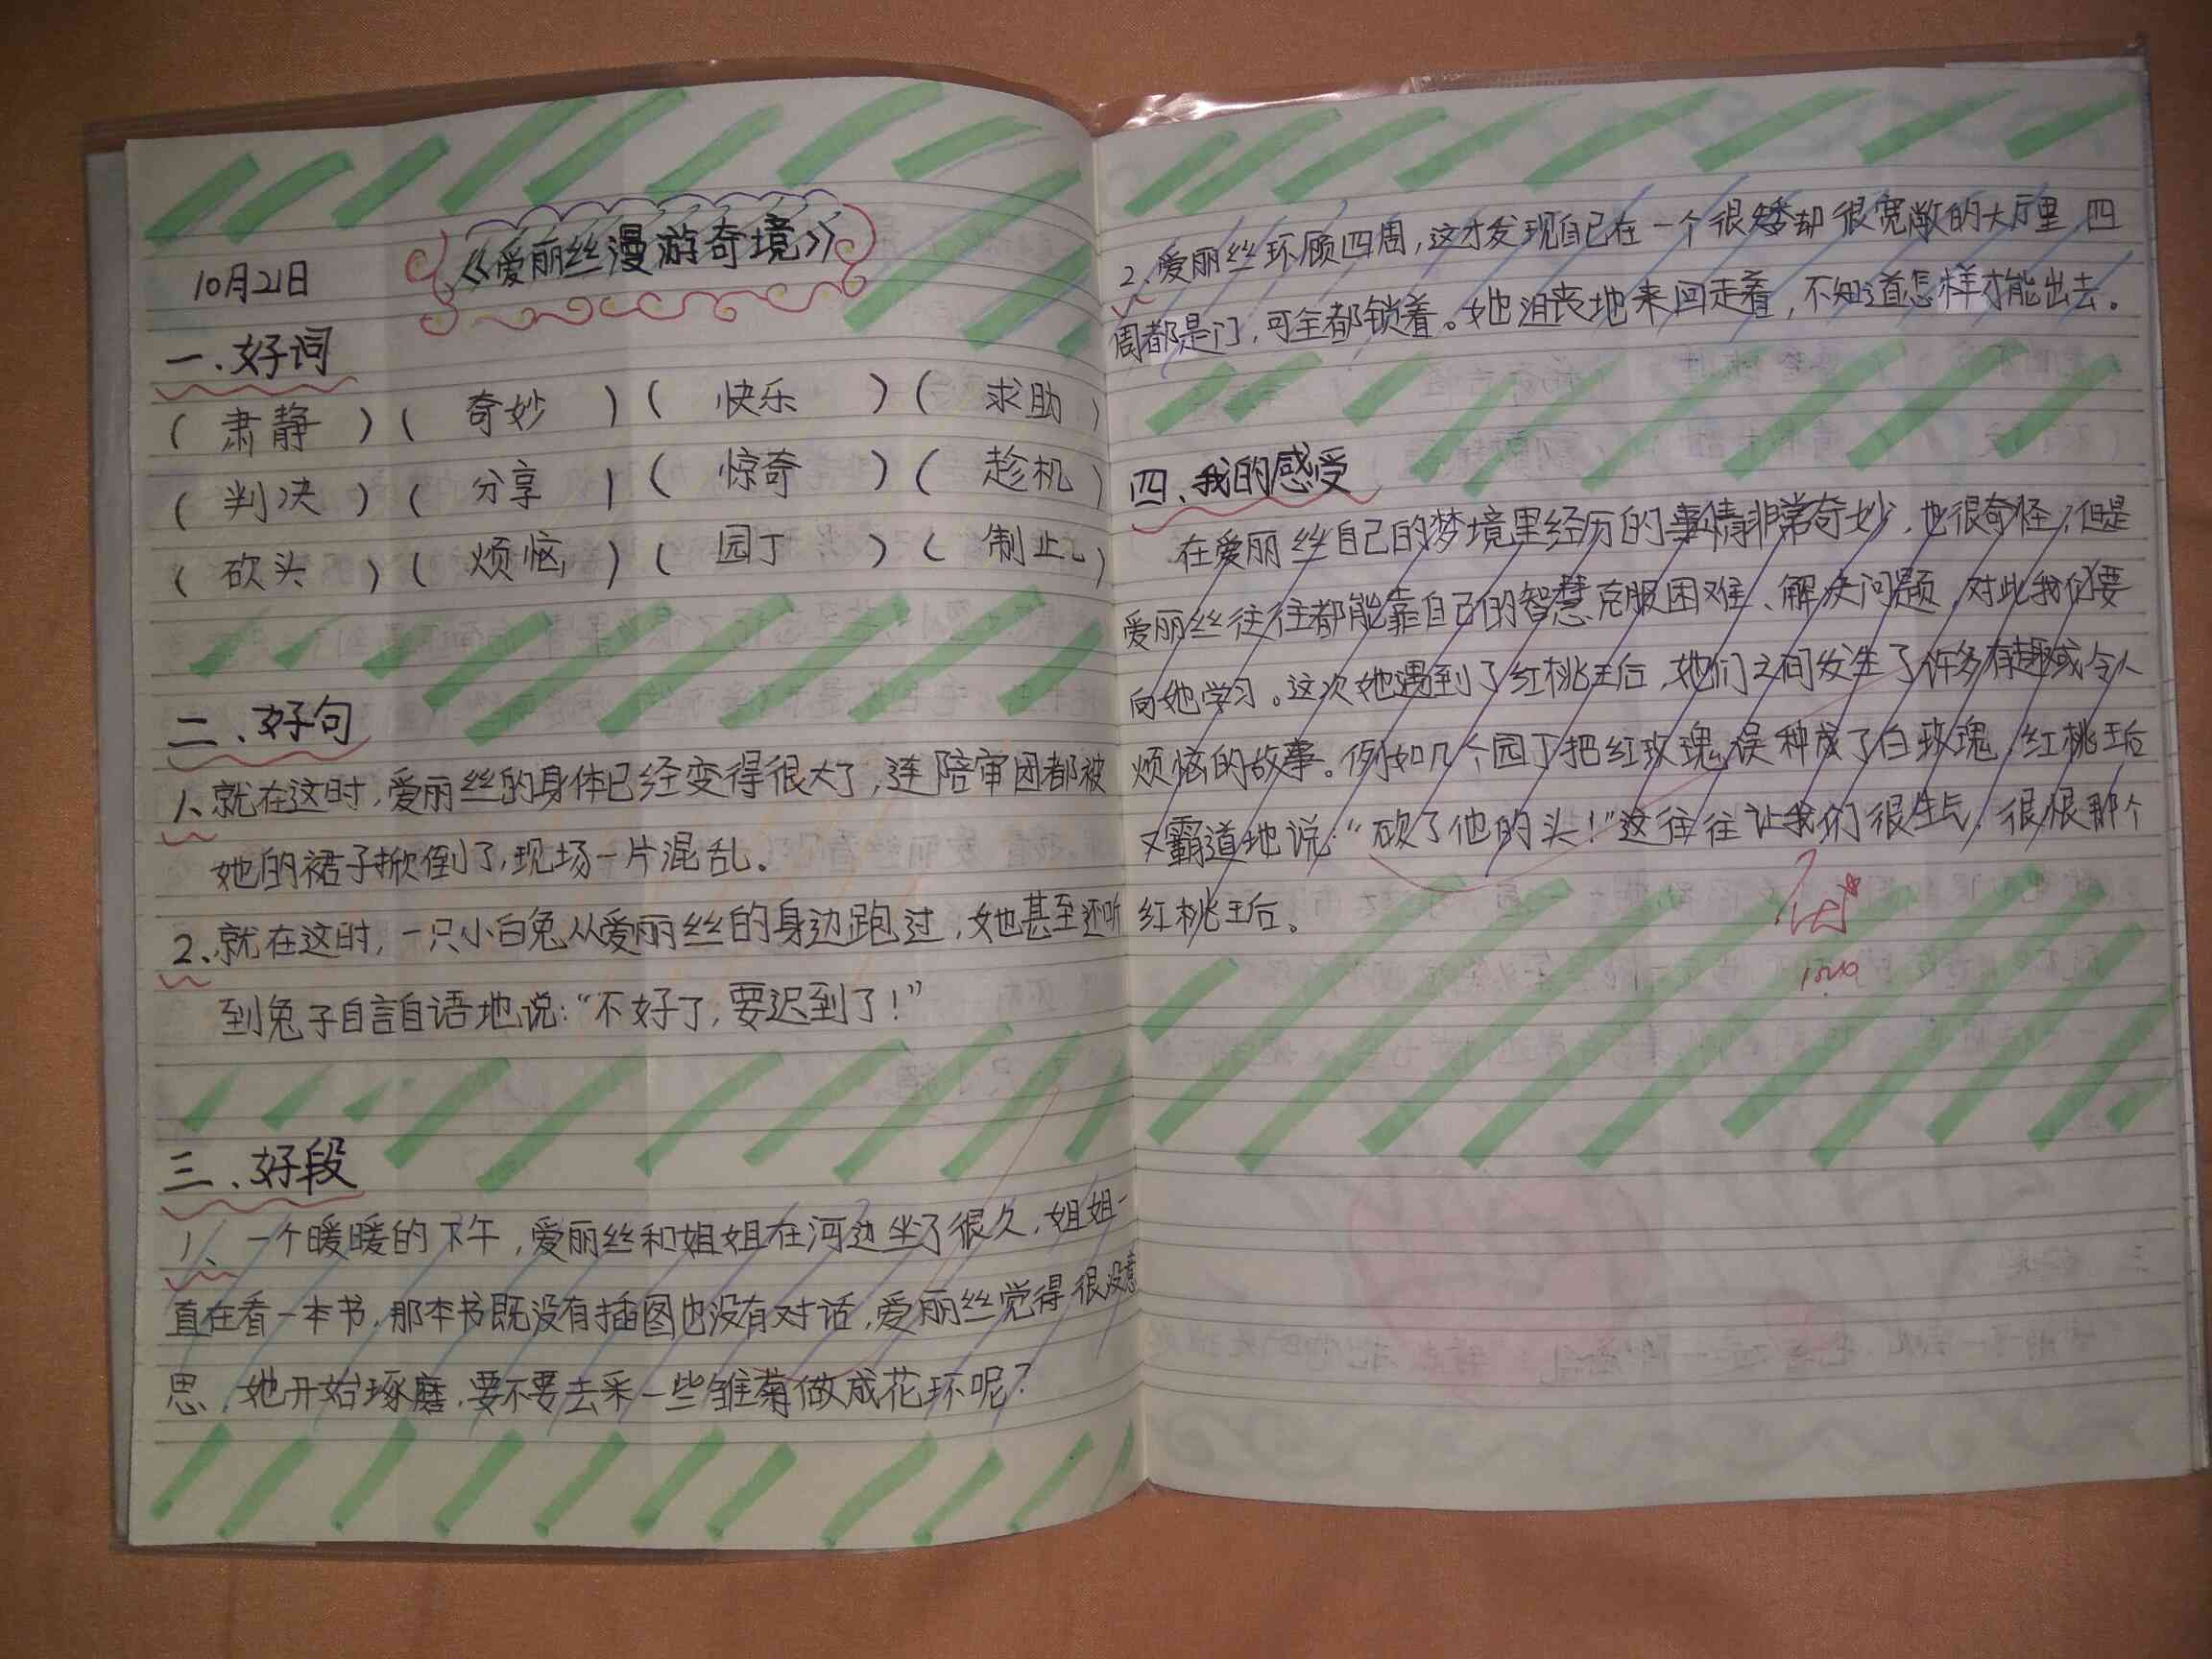 10月21日
《爱丽丝漫游奇境》
一、好词
(肃静)(奇妙)(快乐)(求助)
(判决)(分享)(惊奇)(趁机)
(砍头)(烦恼)(园丁)(制止)
二、好句
1、就在这时,爱丽丝的身体已经变得很大了,连陪审团都被
她的裙子掀倒了,现场一片混乱。
2、就在这时,一只小白兔从爱丽丝的身边跑过,她甚至还听
到兔子自言自语地说:“不好了,要迟到了!”
三、好段
1、一个暖暖的下午,爱丽丝和姐姐在河边坐了很久,姐姐一
直在看一本书,那本书既没有插图也没有对话,爱丽丝觉得很没意
思,她开始琢磨,要不要去采一些雏菊做成花环呢?
2、爱丽丝环顾四周,这才发现自己在一个很矮却很宽敞的大厅里,四
周都是门,可全都锁着。她沮丧地来回走着,不知道怎样才能出去。
四、我的感受
在爱丽丝自己的梦境里经历的事情非常奇妙,也很奇怪,但是
爱丽丝往往都能靠自己的智慧克服困难、解决问题,对此我们要
向她学习。这次她遇到了红桃王后,她们之间发生了许多有趣或令人
烦恼的故事。例如几个园丁把红玫瑰误种成了白玫瑰,红桃王后
又霸道地说:“砍了他的头!”这往往让我们很生气,很恨那个
红桃王后。